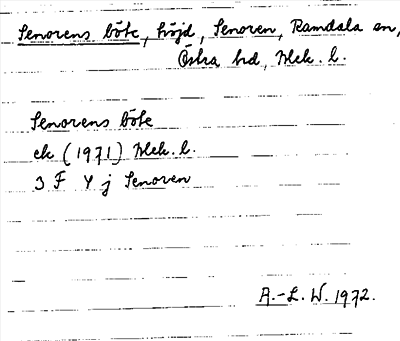 Senorens böte, höjd, Senoren, Ramdala sn,
Östra hd, Blek. l.
Senorens böte
ek (1971) Blek. l.
3 F 4 j Senoren
A.-L. W. 1972.